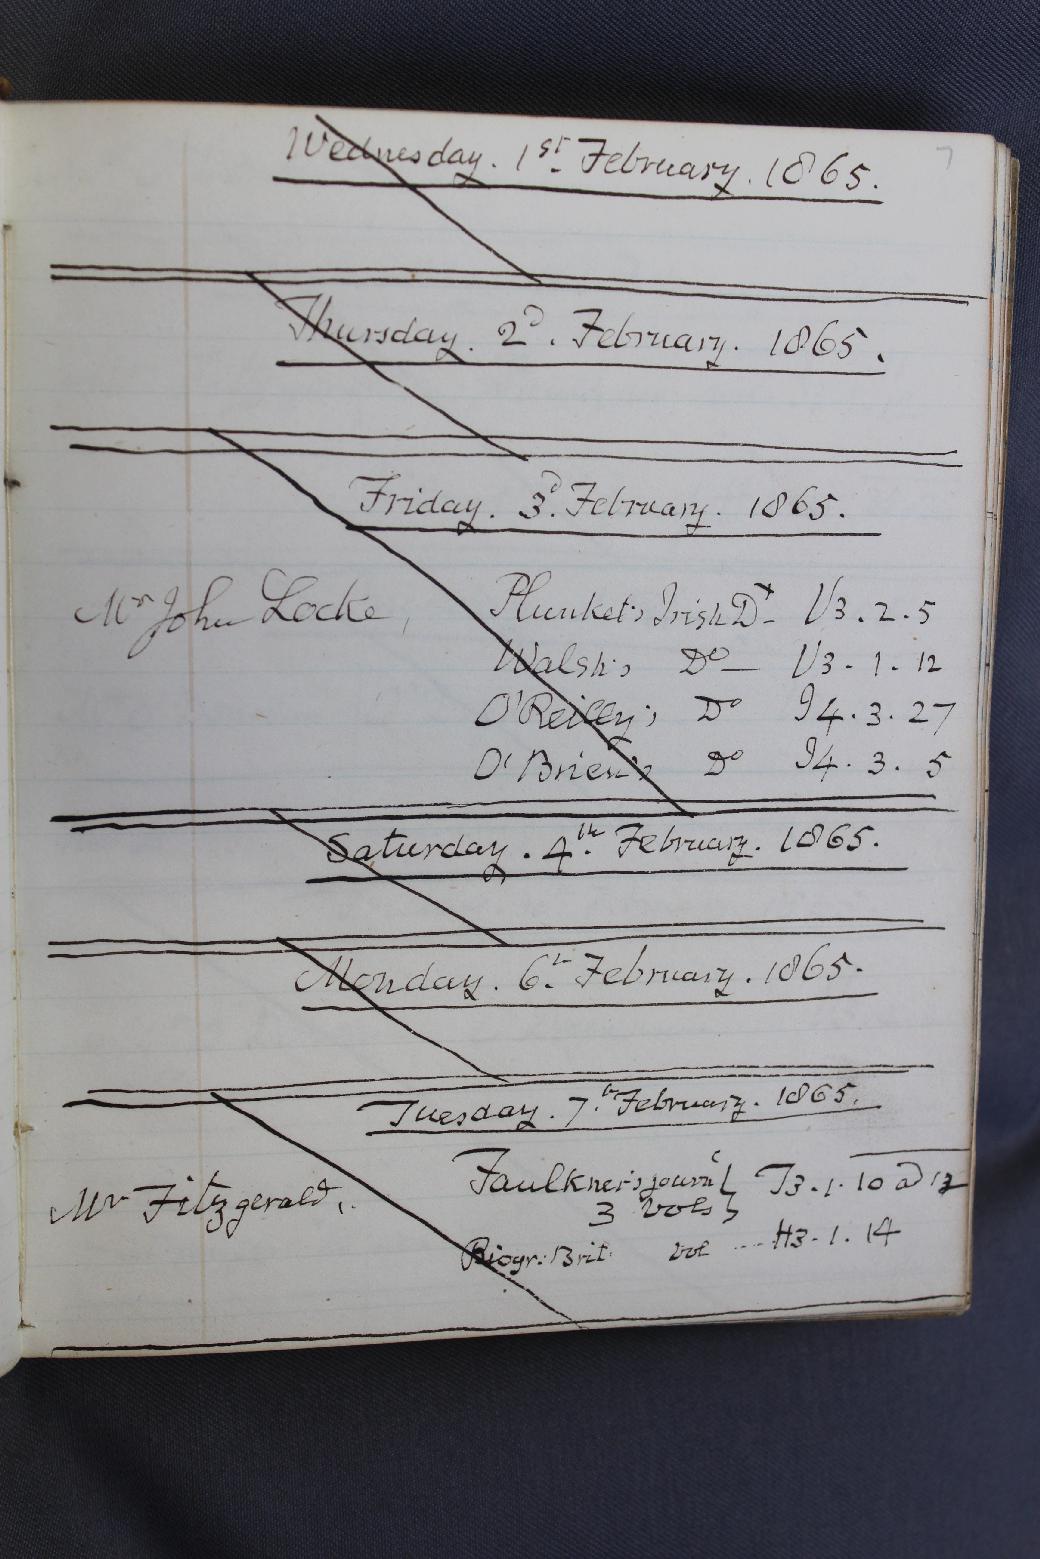 7
Wednesday. 1st February. 1865.
Thursday. 2d. February. 1865.
Friday. 3d. February. 1865.
Mr John Locke, Plunket's Irish Dy V3.2.5
Walsh's Do V3.1.12
O'Reilly's Do I4.3.27
O'Brien's Do I4.3.5
Saturday. 4th. February. 1865.
Monday. 6th February. 1865.
Tuesday. 7th February. 1865.
Mr Fitzgerald, Faulkner's journl T3.1.10 a 12
3 vols
Biogr: Brit: vol H3.1.14